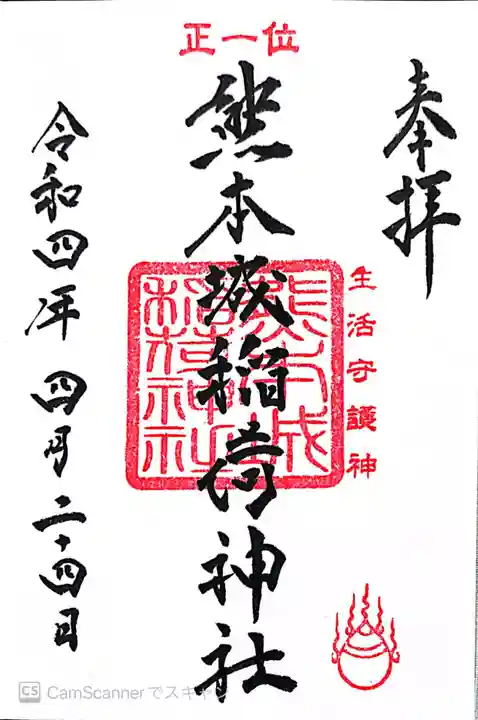 正一位
奉拝
生活守護神
熊本城稲荷神社
令和四年 四月二十四日
CS CamScannerでスキャン